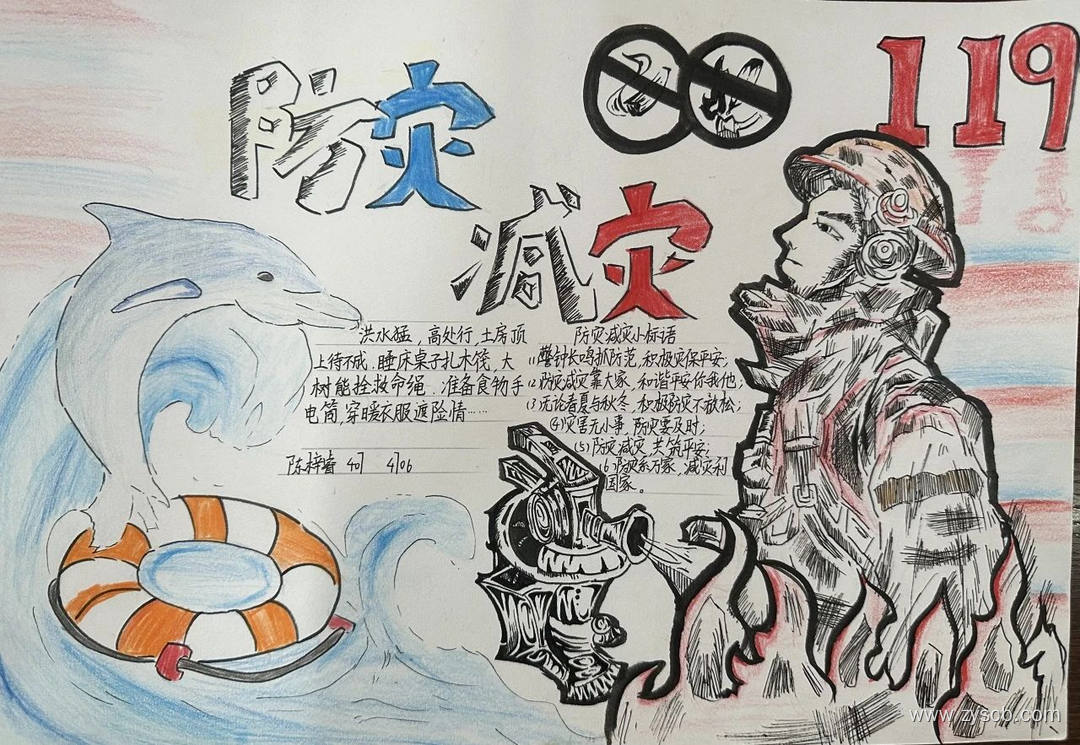 防灾
减灾
119
洪水猛，高处行，土房顶
上待不成．睡床桌子扎木筏，大
树能拴救命绳．准备食物手
电筒，穿暖衣服渡险情……
陈梓睿 407 4706
防灾减灾小标语
(1)警钟长鸣抓防范，积极灾保平安；
(2)防灾减灾靠大家，和谐平安你我他；
(3)无论春夏与秋冬，积极防灾不放松；
(4)灾害无小事，防灾要及时；
(5)防灾减灾 共筑平安；
(6)防灾系万家，减灾利
国家。
www.zyscb.com